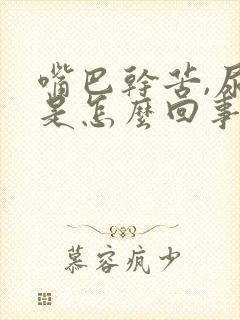 嘴巴幹苦,尿
是怎麼回事
慕容疯少